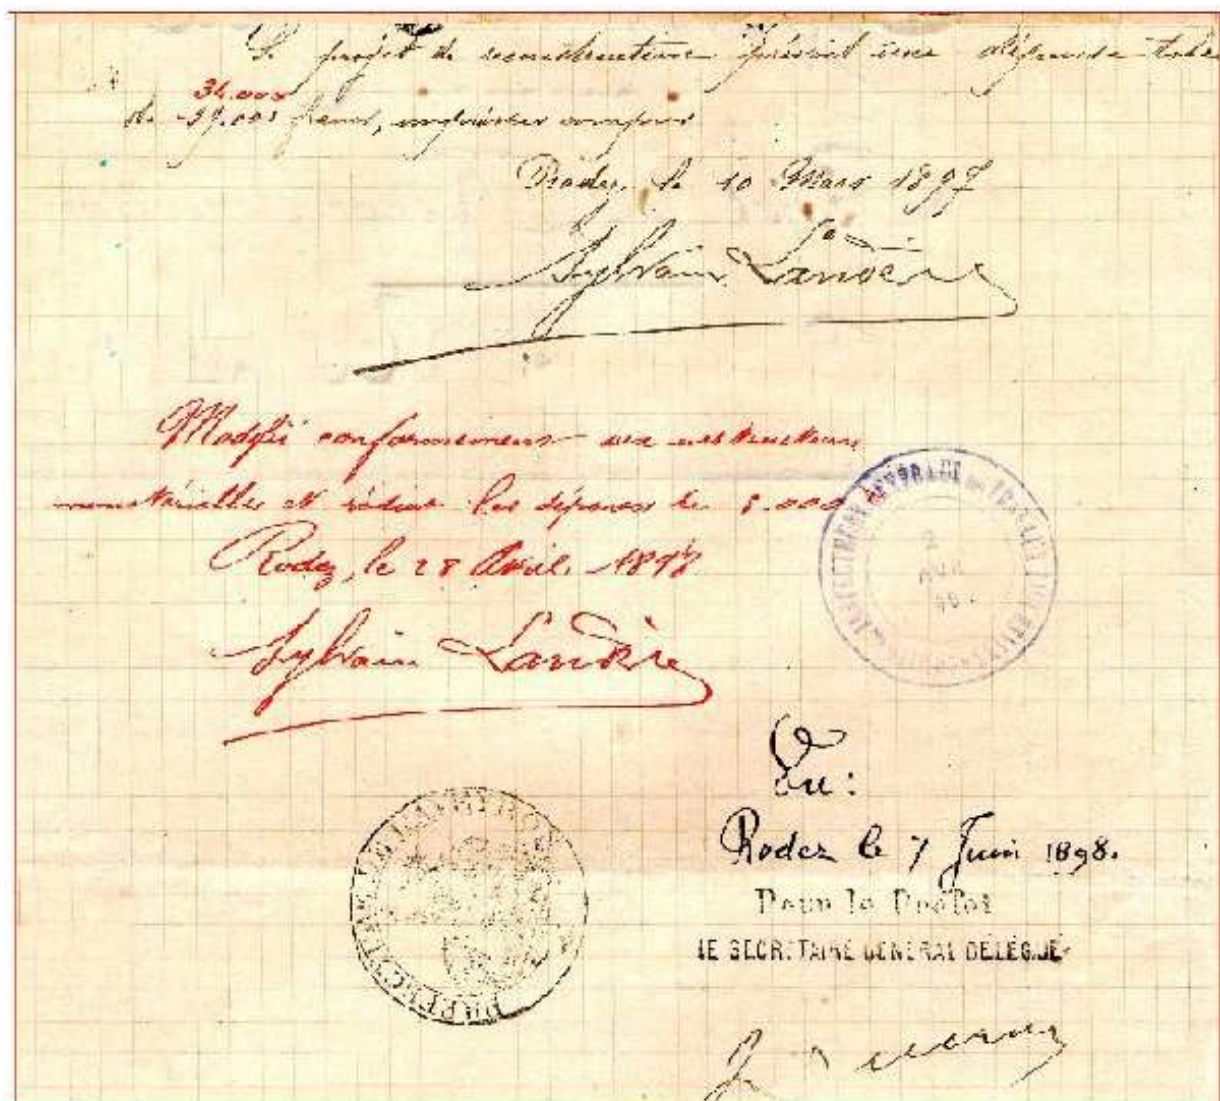 Le projet de reconstruction prévoit une dépense totale
34.000
de 39.000 francs, imprévus compris
Rodez, le 10 Mars 1897
Sylvain Landès
Modifié conformément aux instructions
ministérielles et réduit les dépenses de 5.000
Rodez, le 28 Avril 1898
Sylvain Landès
AVR
Vu:
Rodez le 7 Juin 1898.
Pour le Préfet
LE SECRÉTAIRE GÉNÉRAL DÉLÉGUÉ
PRÉFECTURE DE L'AVEYRON